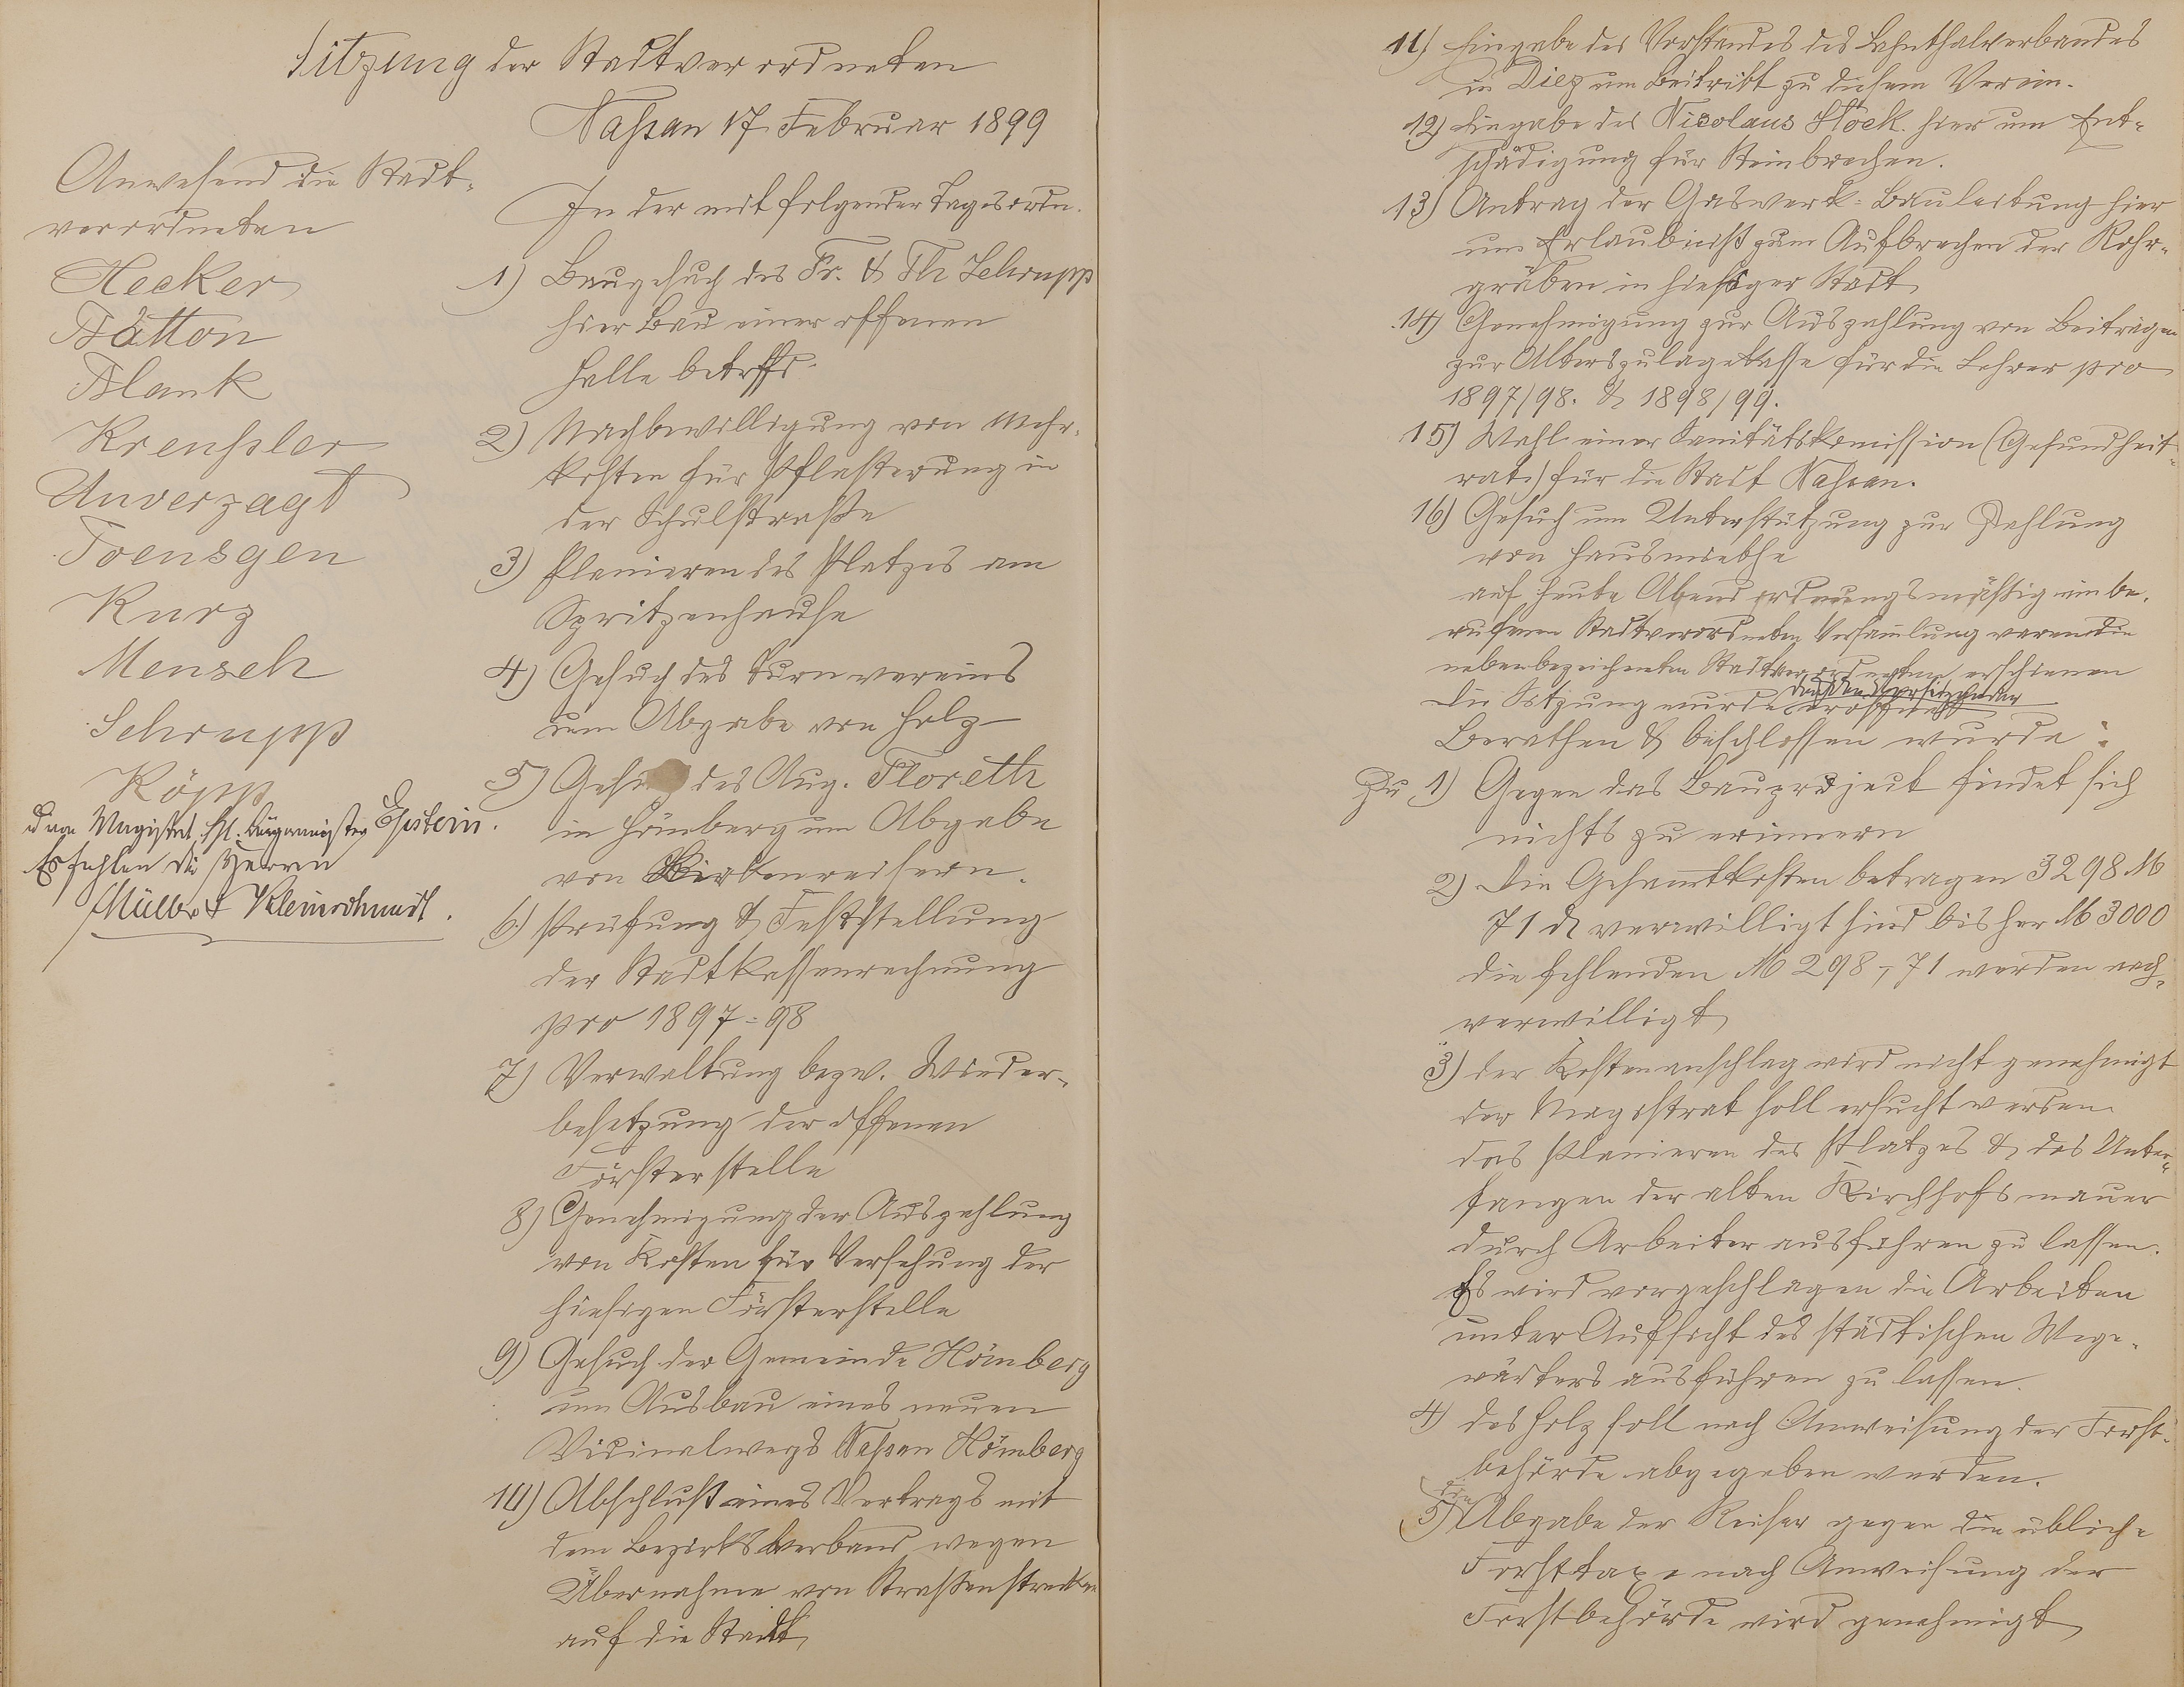 Sitzung der Stadtverordneten
Nassau 17 Februar 1899
Anwesend die Stadt-
verordneten
Hecker
Bätton
Blank
Kreußler
Unverzagt
Toensgen
Kurz
Mensch
Schrupp
Köpp
u. vom Magistrat H. Bürgermeister Epstein.
Es fehlen die Herren
Müller & Kleinschmidt.
In der mit folgender Tagesordn.
1) Baugesuch des Fr. & Th Schrupp
hier Bau einer offenen
Halle betrffs.
2) Nachbewilligung von Mehr-
kosten für Pflasterung in
der Schulstraße
3) Planieren des Platzes am
Spritzenhause
4) Gesuch des Turnvereins
um Abgabe von Holz
5) Gesuch des Aug. Floreth
in Hömberg um Abgabe
von Birkenreisern.
6) Prüfung & Feststellung
der Stadtkassenrechnung
pro 1897=98
7) Verwaltung bezw. Wieder-
besetzung der offenen
Försterstelle
8) Genehmigung der Auszahlung
von Kosten für Versehung der
hiesigen Försterstelle
9) Gesuch der Gemeinde Hömberg
um Ausbau eines neuen
Vicinalwegs Nassau Hömberg
10) Abschluß eines Vertrags mit
dem Bezirksverband wegen
Übernahme von Straßenstrecken
auf die Stadt
11) Eingabe des Vorstandes des Lahnthalverbandes
in Diez um Beitritt zu diesem Verein.
12) Eingabe des Nicolaus Stöck. hier um Ent-
schädigung für Steinbrechen.
13) Antrag der Gaswerk=Bauleitung hier
um Erlaubniß zum Aufbrechen der Rohr-
gräben in hiesiger Stadt
14) Genehmigung zur Auszahlung von Beiträgen
zur Alterszulagekasse für die Lehrer pro
1897/98. & 1898/99.
15) Wahl einer Sanitätskomission (Gesundheit-
rat) für die Stadt Nassau.
16) Gesuch um Unterstützung zur Zahlung
von Hausmiethe
auf heute Abend ordnungsmäßig einbe-
rufenen Stadtverordneten Versamlung waren die
nebenbezeichneten Stadtverordneten erschienen
Die Sitzung wurde durch den Vorsitzenden eröffnet
Berathen & beschlossen wurde:
Zu 1) Gegen das Bauproject findet sich
nichts zu erinnern
2) Die Gesamtkosten betragen 3298 M
71 d verwilligt sind bisher M 3000
die fehlenden M 298,71 werden nach-
verwilligt
3) der Kostenanschlag wird nicht genehmigt
der Magistrat soll ersucht werden
das Planieren des Platzes & das Unter-
fangen der alten Kirchhofsmauer
durch Arbeiter ausführen zu lassen.
Es wird vorgeschlagen die Arbeiten
unter Aufsicht des städtischen Wege-
wärters ausführen zu lassen.
4) das Holz soll nach Anweisung der Forst-
behörde abgegeben werden.
5) Die Abgabe der Reiser gegen die übliche
Forsttaxe nach Anweisung der
Forstbehörde wird genehmigt